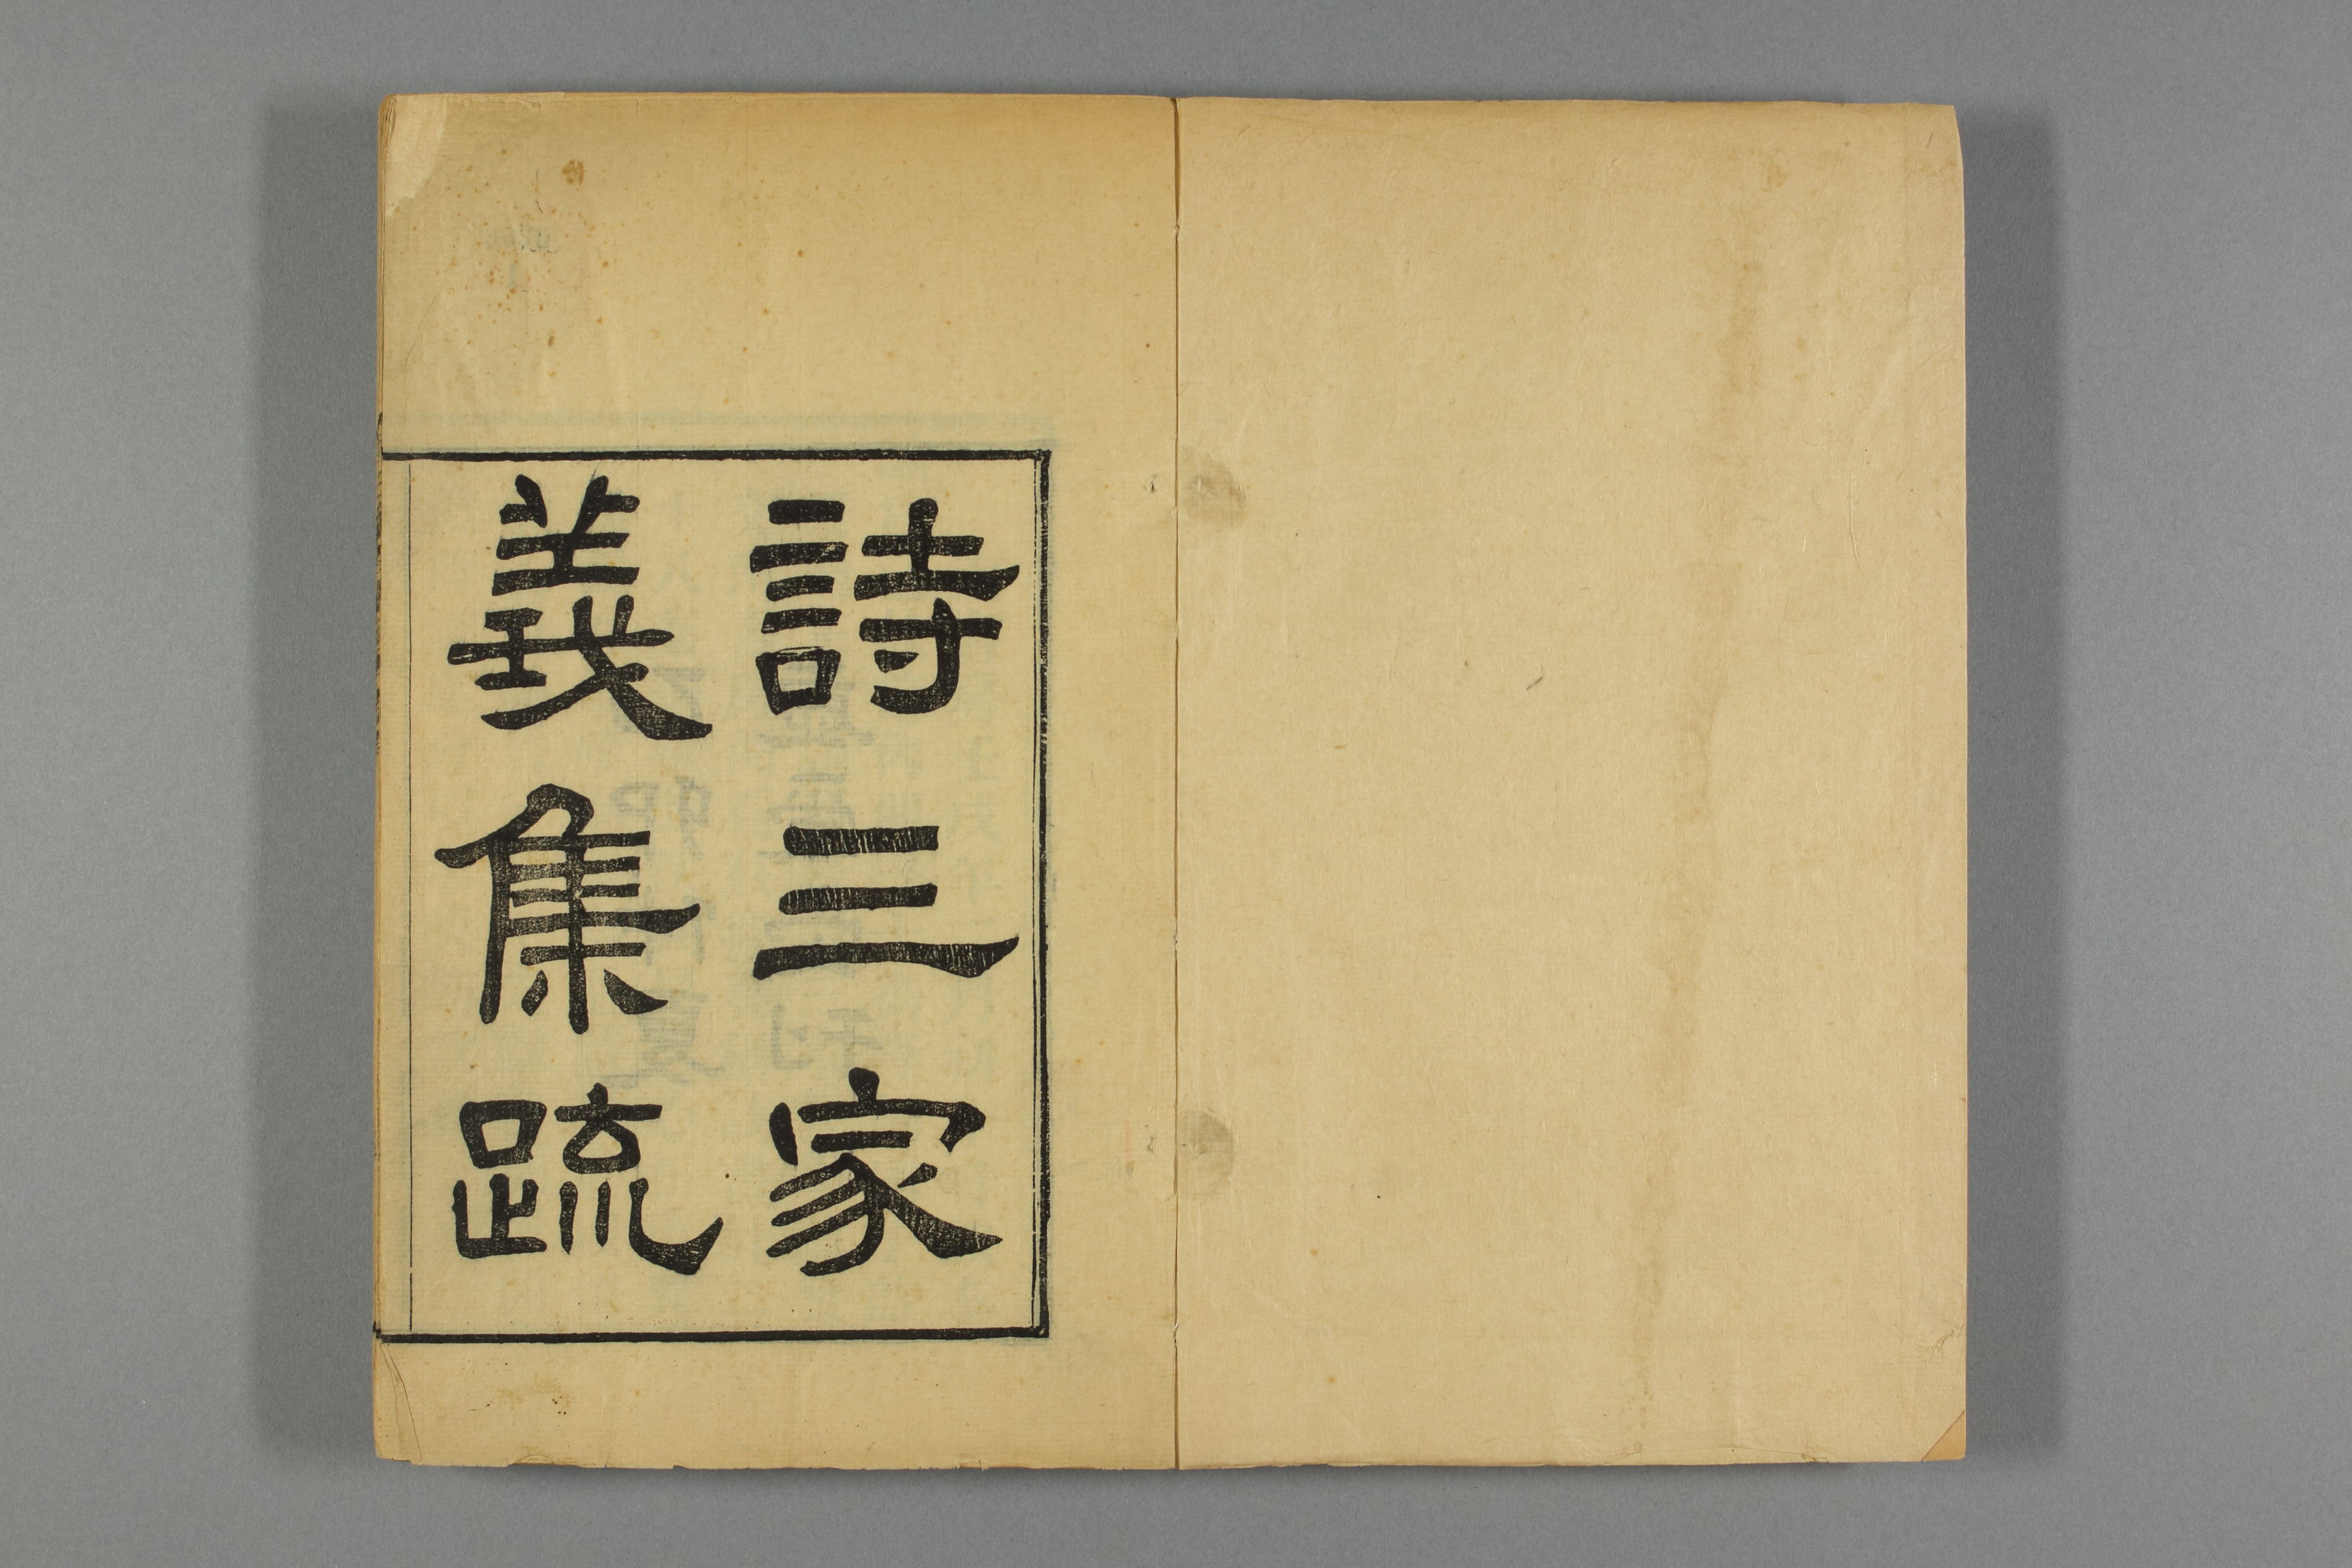 詩三家
義集疏